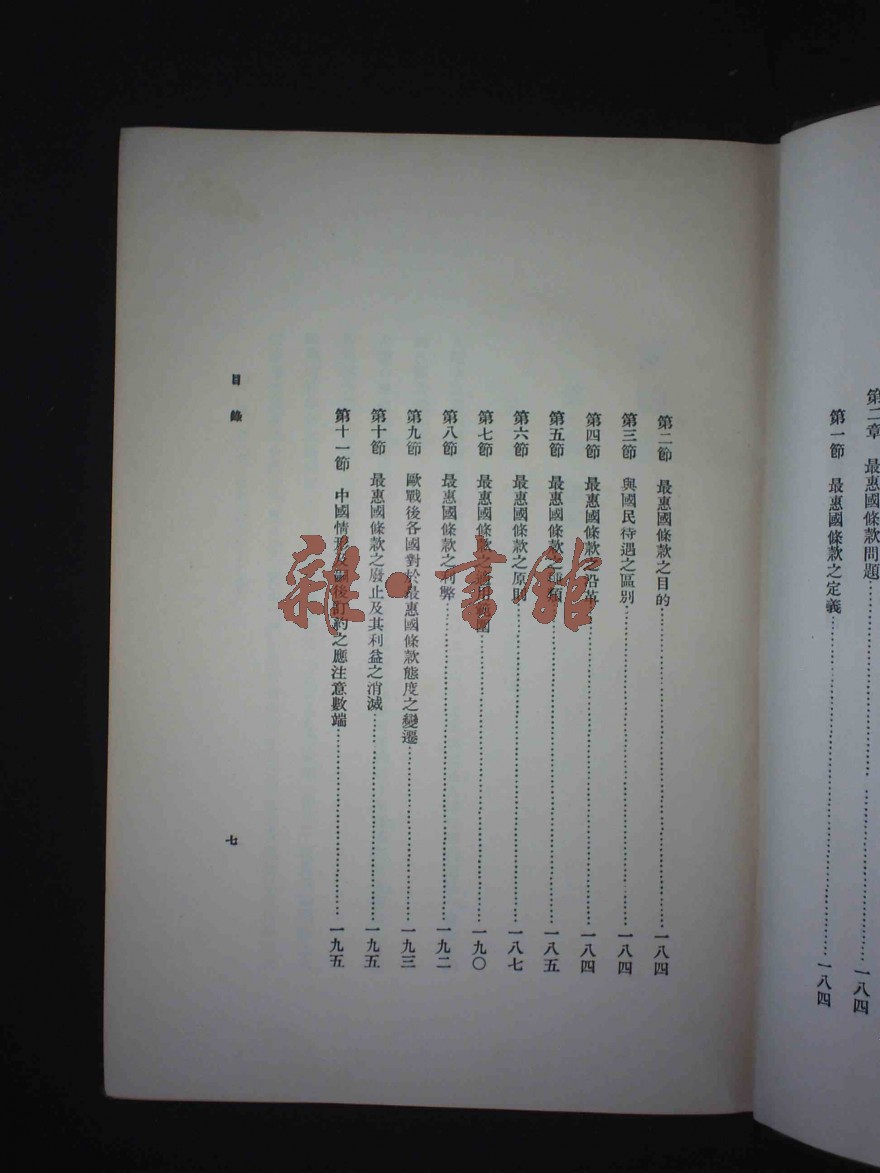 第二章 最惠國條款問題 一八四
第一節 最惠國條款之定義 一八四
第二節 最惠國條款之目的 一八四
第三節 與國民待遇之區別 一八四
第四節 最惠國條款之沿革 一八四
第五節 最惠國條款之種類 一八五
第六節 最惠國條款之原則 一八七
第七節 最惠國條款之適用範圍 一九〇
第八節 最惠國條款之利弊 一九二
第九節 歐戰後各國對於最惠國條款態度之變遷 一九三
第十節 最惠國條款之廢止及其利益之消滅 一九五
第十一節 中國情形及嗣後訂約之應注意數端 一九五
目錄
七
雜·書館